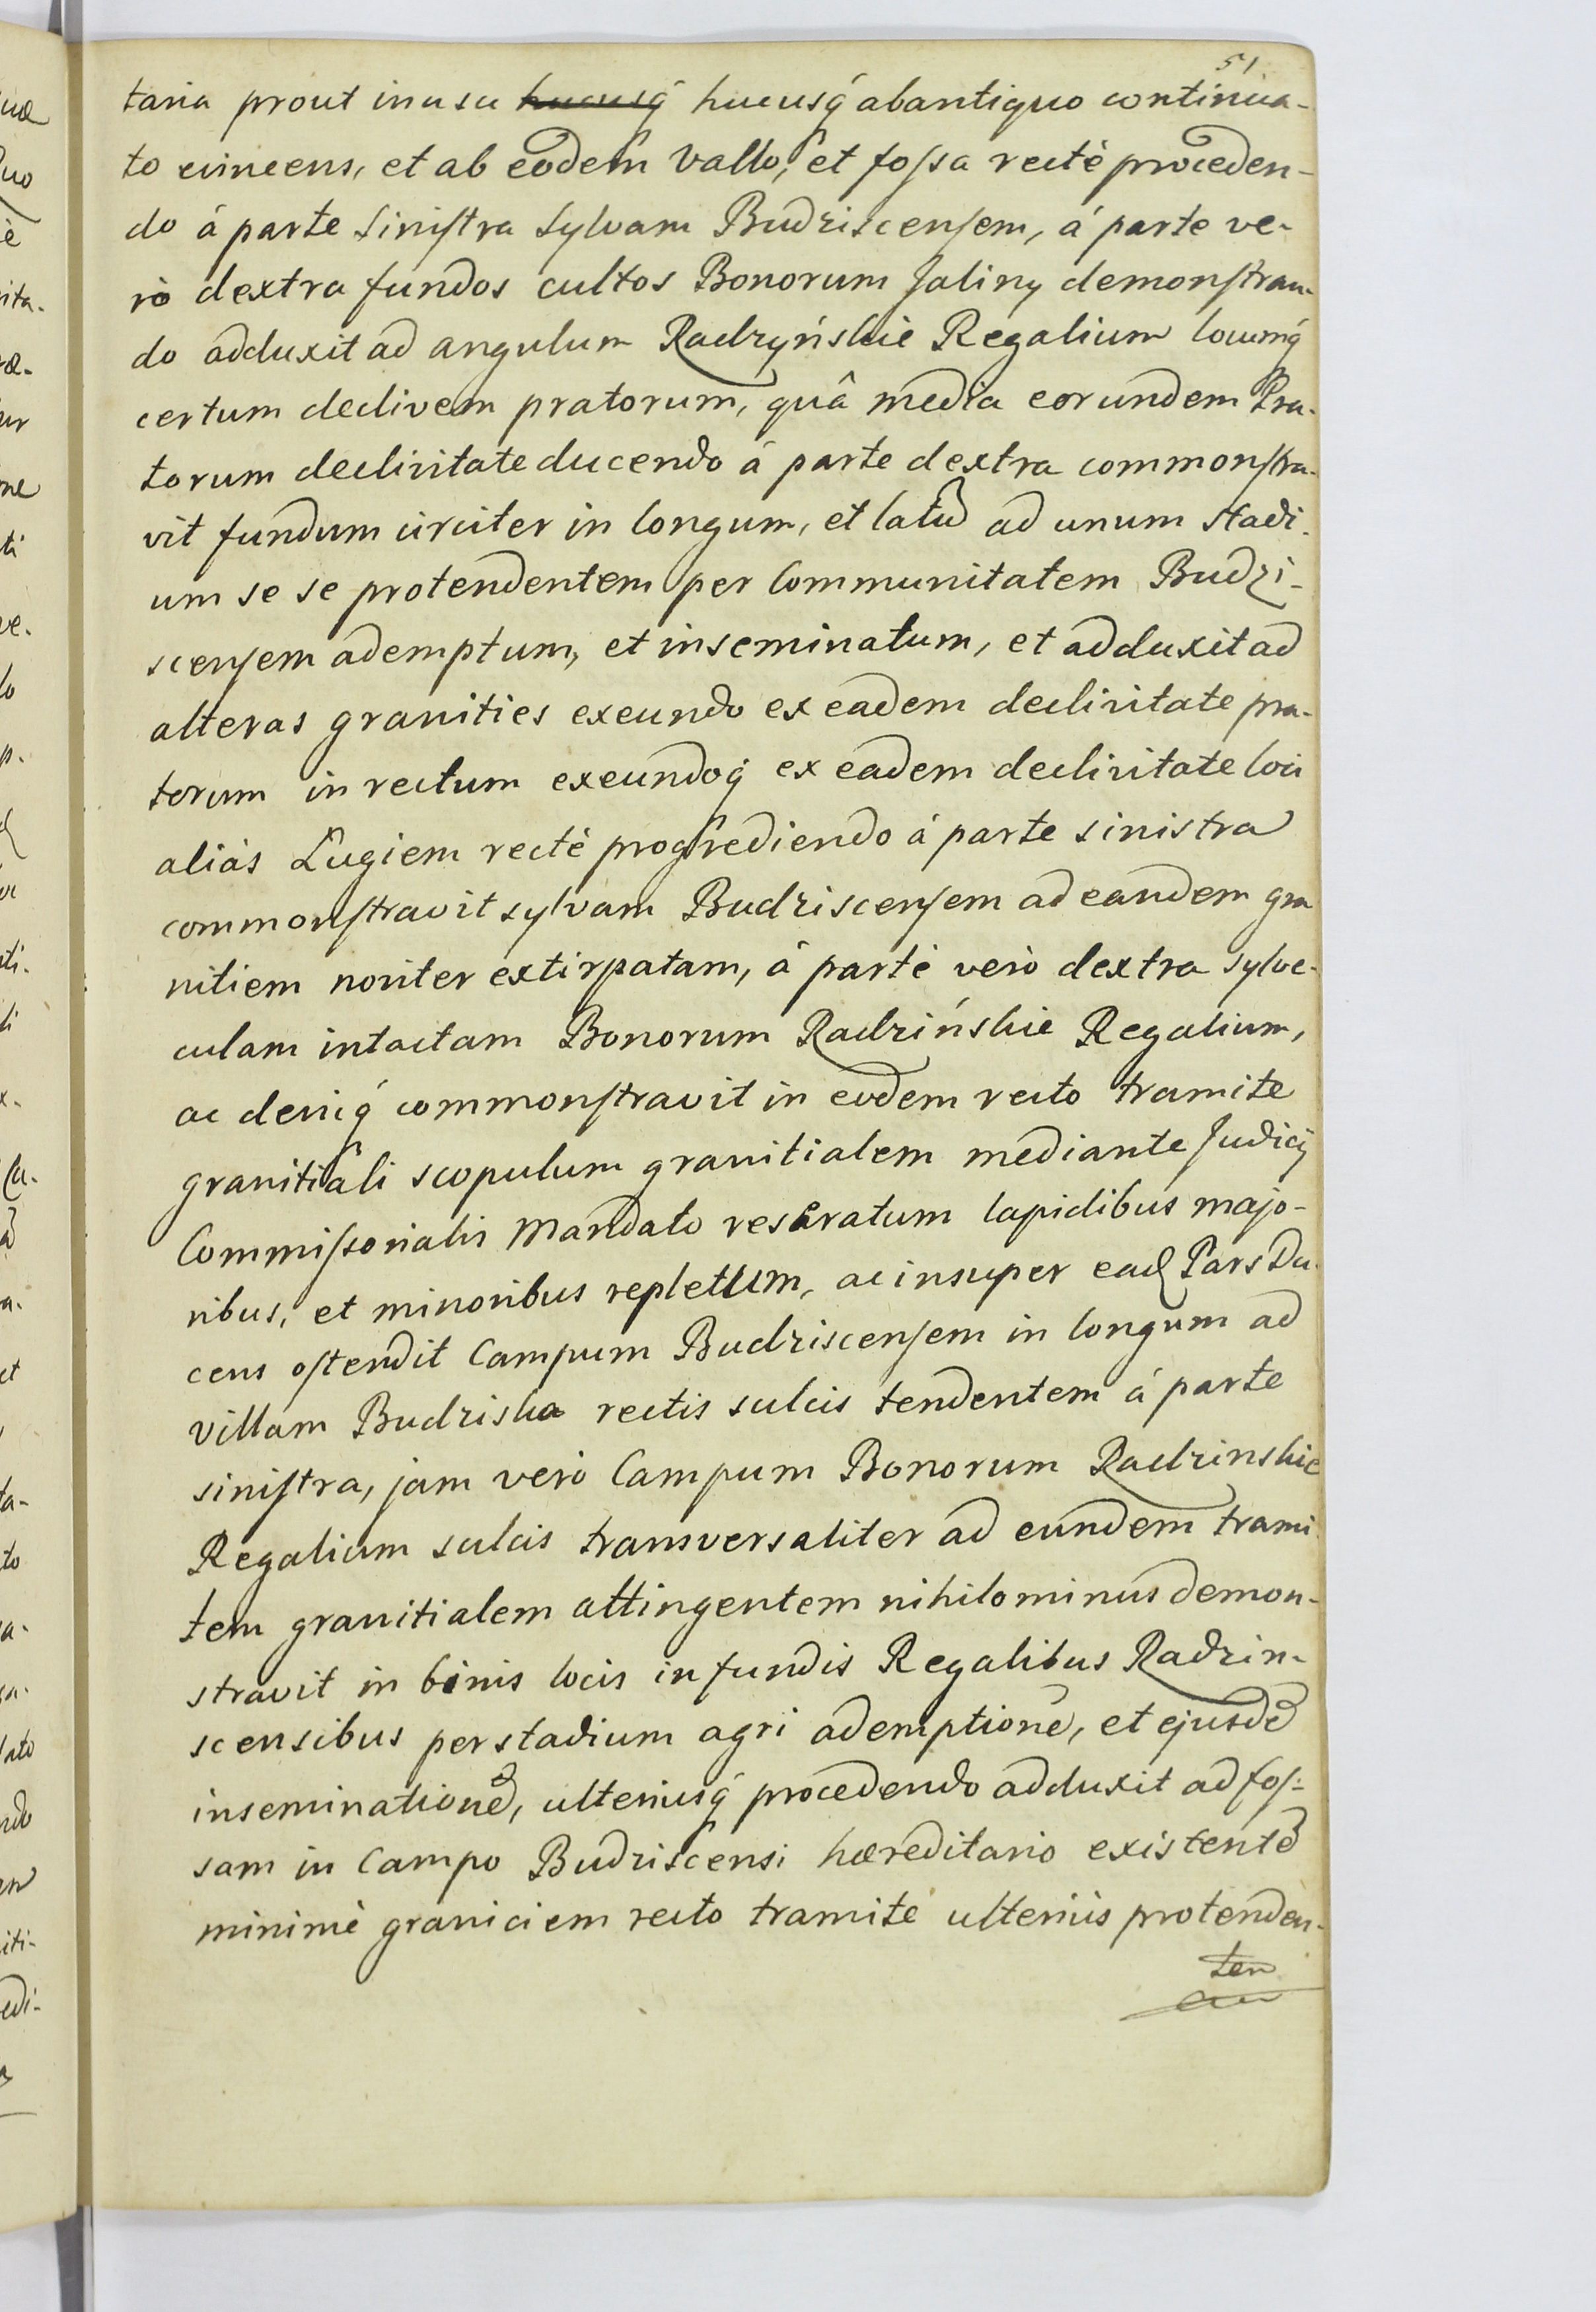 51
taria prout in usu hucusq́ hucusq́ ab antiquo continua-
to evincens, et ab eodem Vallo, et fossa rectè proceden-
do á parte sinistra Sylvam Budziscensem, á parte ve-
rò dextra fundos cultos Bonorum Jaliny demonstran-
do adduxit ad angulum Radzyńskie Regalium locumq́
certum declivem pratorum, quâ media eorundem Pra-
torum declivitate ducendo á parte dextra commonstra-
vit fundum circiter in longum, et latū ad unum stadi-
um se se protendentem per Communitatem Budzi-
scensem ademptum, et inseminatum, et adduxit ad
alteras granities exeundo ex eadem declivitate pra-
torum in rectum exeundoq́ ex eadem declivitate loci
aliàs Ługiem rectè progrediendo á parte sinistra
commonstravit sylvam Budziscensem ad eandem gra
nitiem noviter extirpatam, á parte verò dextra sylve-
culam intactam Bonorum Radzińskie Regalium,
ac deniq́ commonstravit in eodem recto tramite
granitiali scopulum granitialem mediante Judicij
Commissorialis Mandato reseratum lapidibus majo-
ribus, et minoribus repletum, ac insuper ead Pars Du-
cens ostendit Campum Budziscensem in longum ad
villam Budziska rectis sulcis tendentem á parte
sinistra, jam verò Campum Bonorum Radzinskie
Regalium sulcis transversaliter ad eundem trami
tem granitialem attingentem nihilominus demon-
stravit in binis locis in fundis Regalibus Radzin-
scensibus per stadium agri ademptionē, et ejusdē
inseminationē, ulteriusq́ procedendo adduxit ad fos-
sam in Campo Budziscensi hæreditario existentē
minimè graniciem recto tramite ulterius protenden-
ten